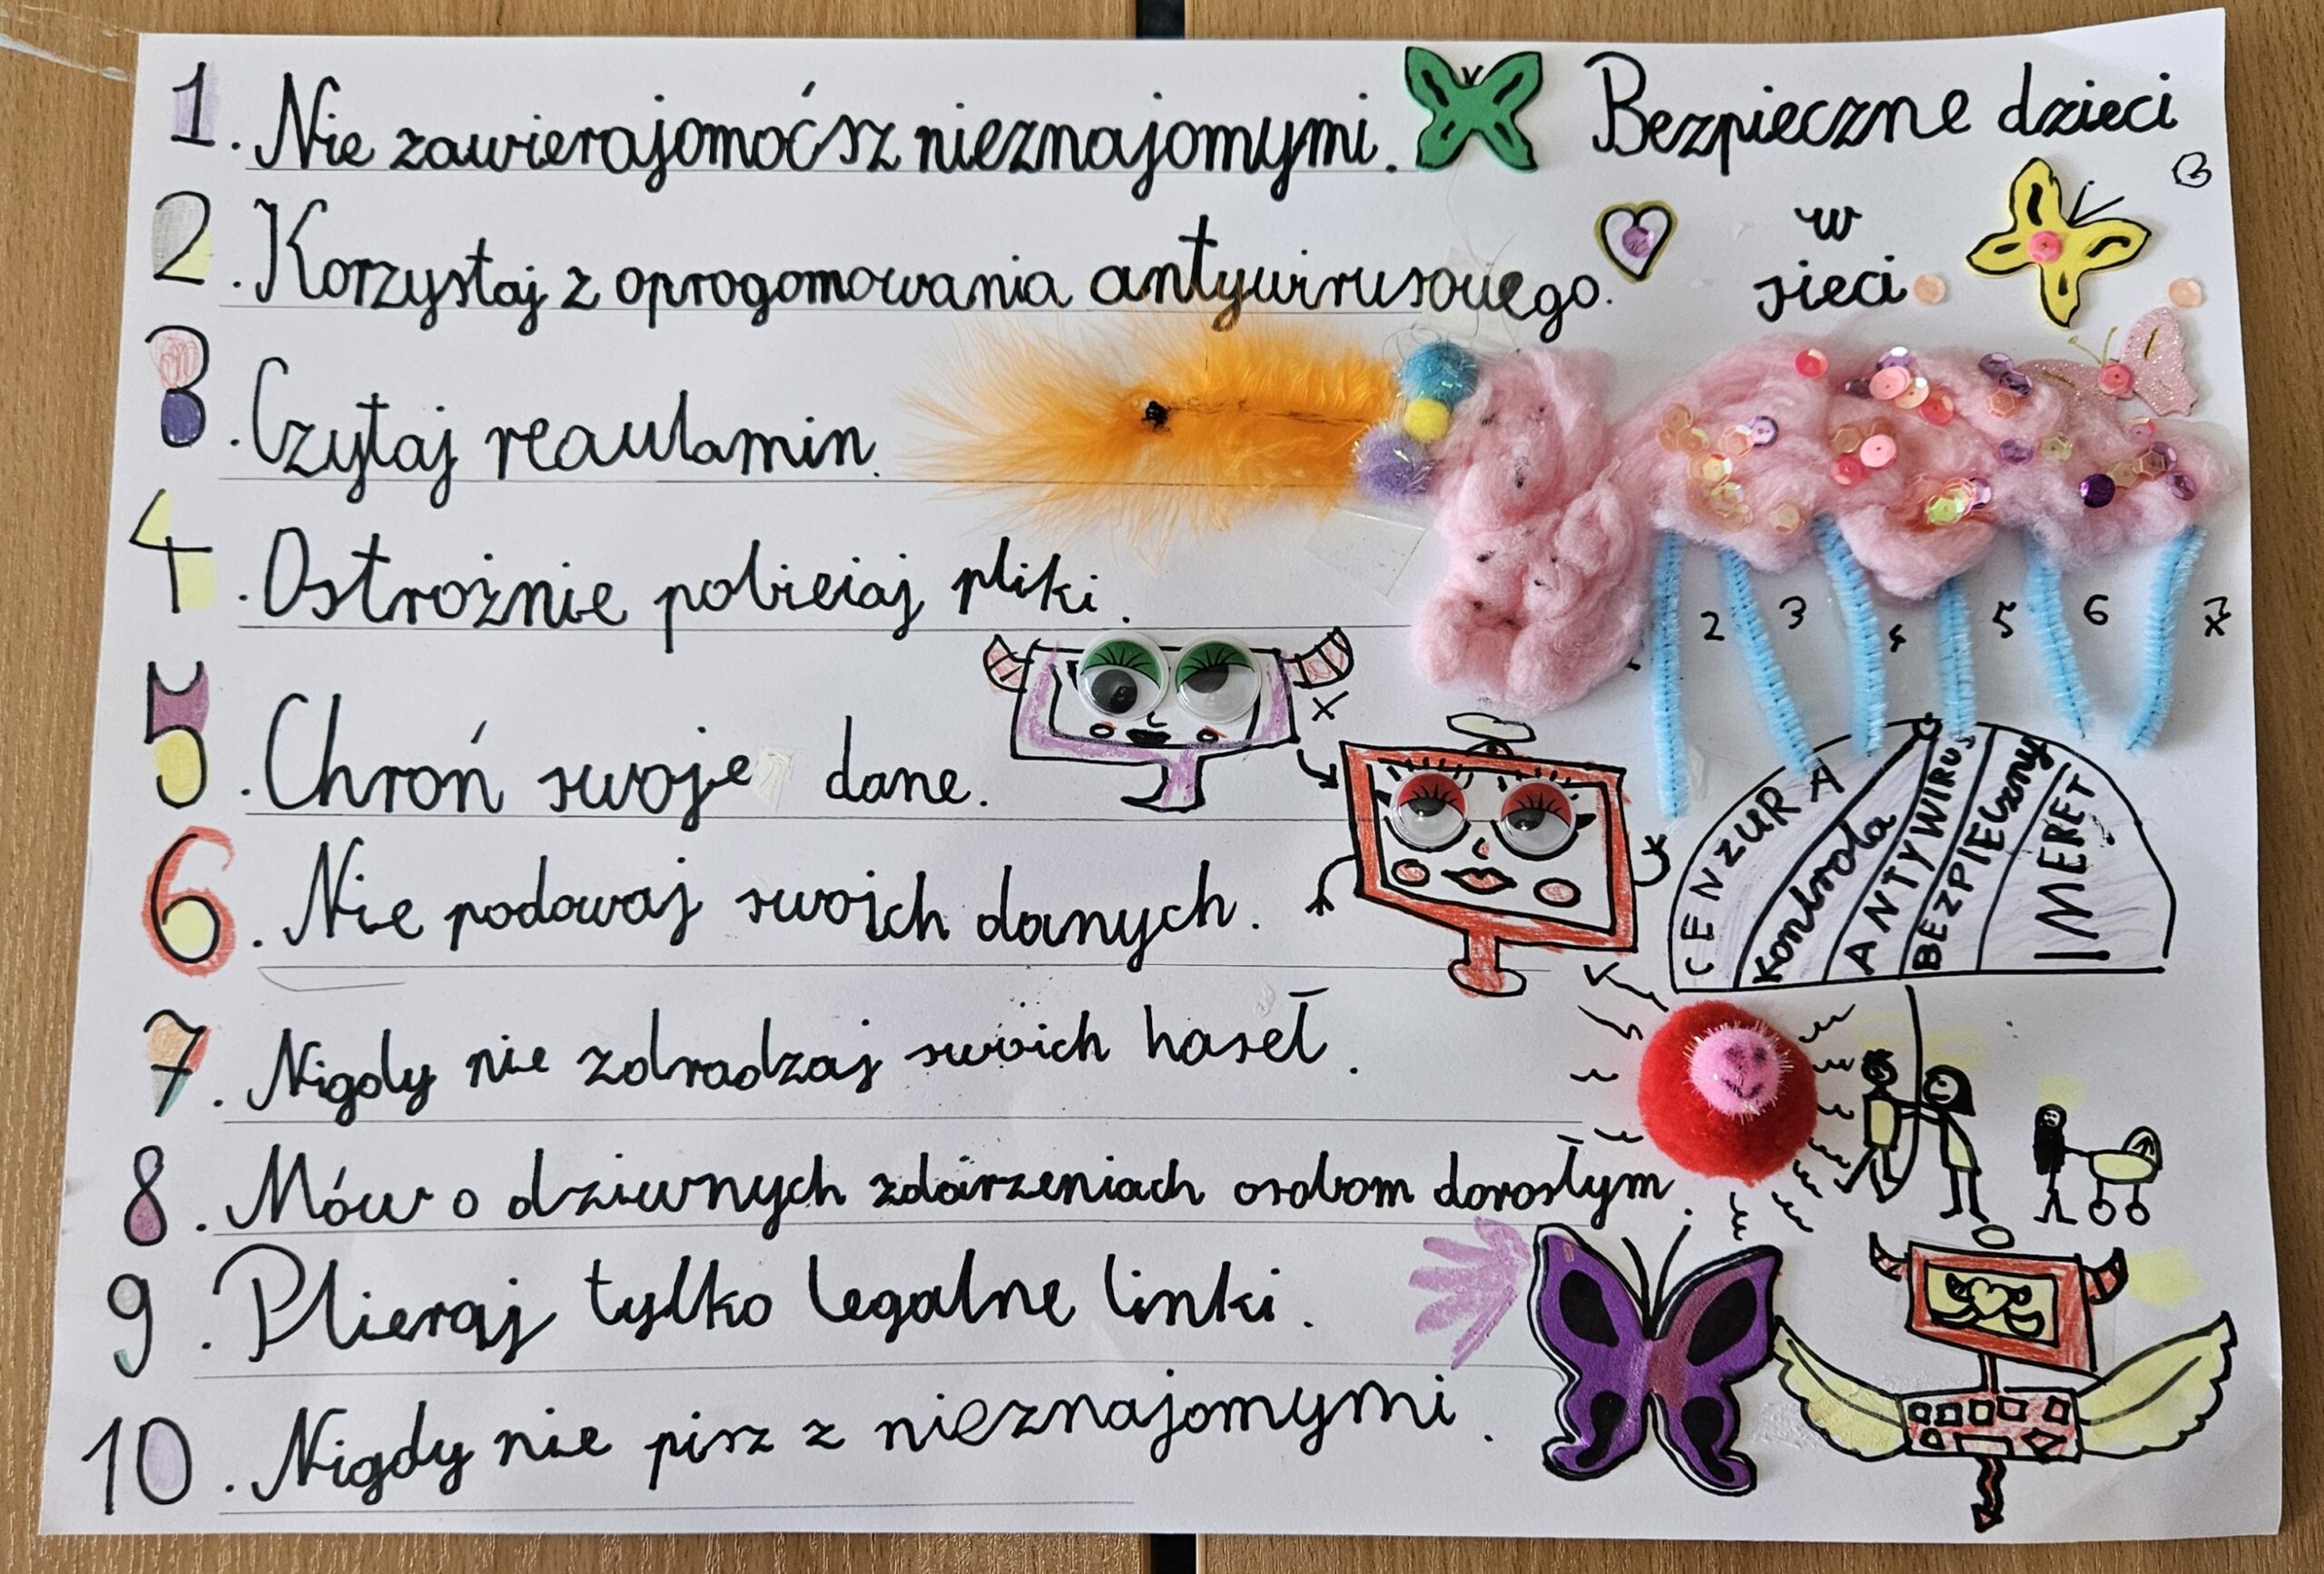 Bezpieczne dzieci
w
sieci
1. Nie zawierajomoćsz nieznajomymi.
2. Korzystaj z oprogomowania antywirusowego.
3. Czytaj reaulamin.
4. Ostrożnie pobieiaj pliki.
5. Chroń swoje dane.
6. Nie podawaj swoich danych.
7. Nigdy nie zdradzaj swoich haseł.
8. Mów o dziwnych zdarzeniach osobom dorosłym.
9. Plieraj tylko legalne linki.
10. Nigdy nie pisz z nieznajomymi.
2 3 4 5 6 7
CENZURA
Kontrola
ANTYWIRUS
BEZPIECZNY
IMERET